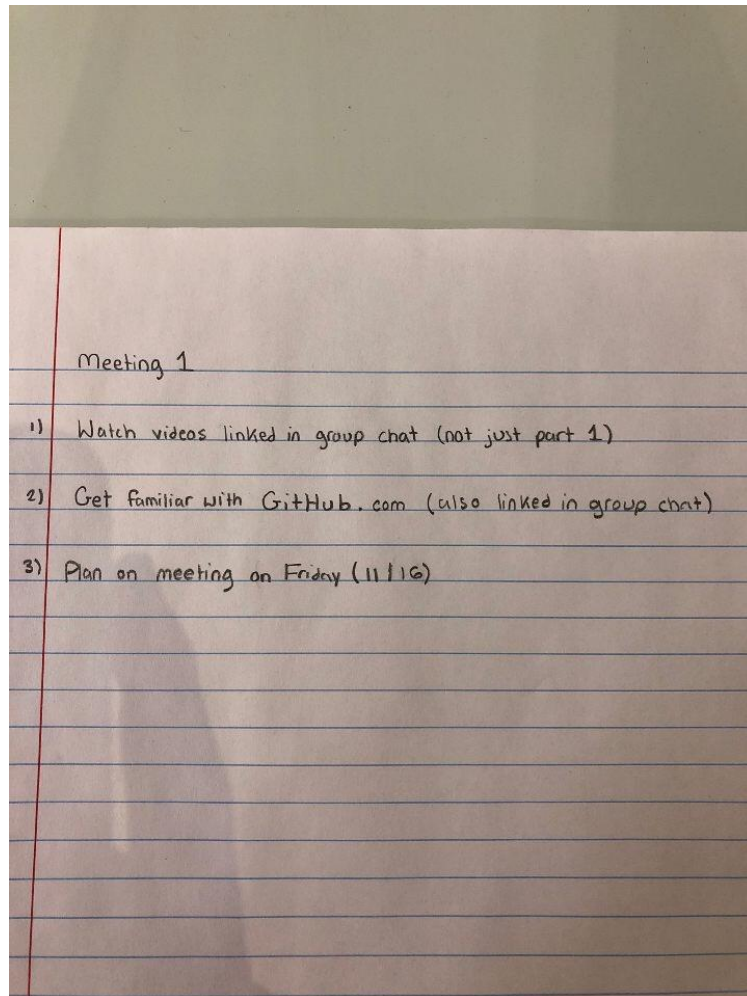 Meeting 1
1) Watch videos linked in group chat (not just part 1)
2) Get familiar with GitHub.com (also linked in group chat)
3) Plan on meeting on Friday (11/16)